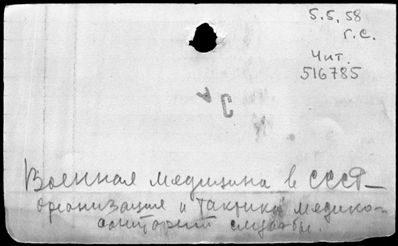 5.5.58
г.с.
Чит.
516785
Военная медицина в СССР –
организация и тактика медико-
санитарн службы.